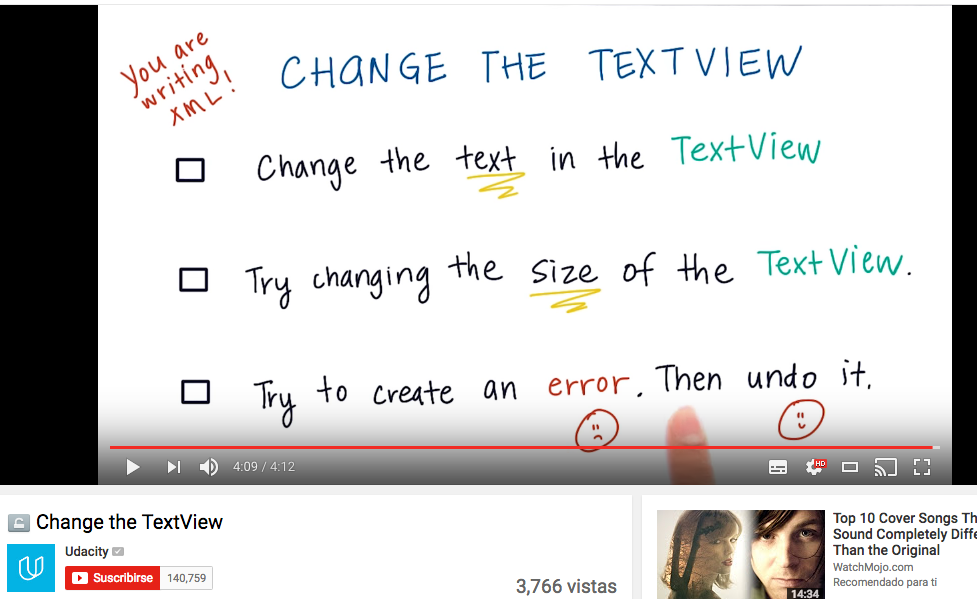 You are
writing
XML!
CHANGE THE TEXTVIEW
Change the text in the TextView
Try changing the size of the TextView.
Try to create an error. Then undo it.
4:09 / 4:12
HD
Change the TextView
Udacity
Suscribirse 140,759
3,766 vistas
Top 10 Cover Songs Th
Sound Completely Diffe
Than the Original
WatchMojo.com
Recomendado para ti
14:34